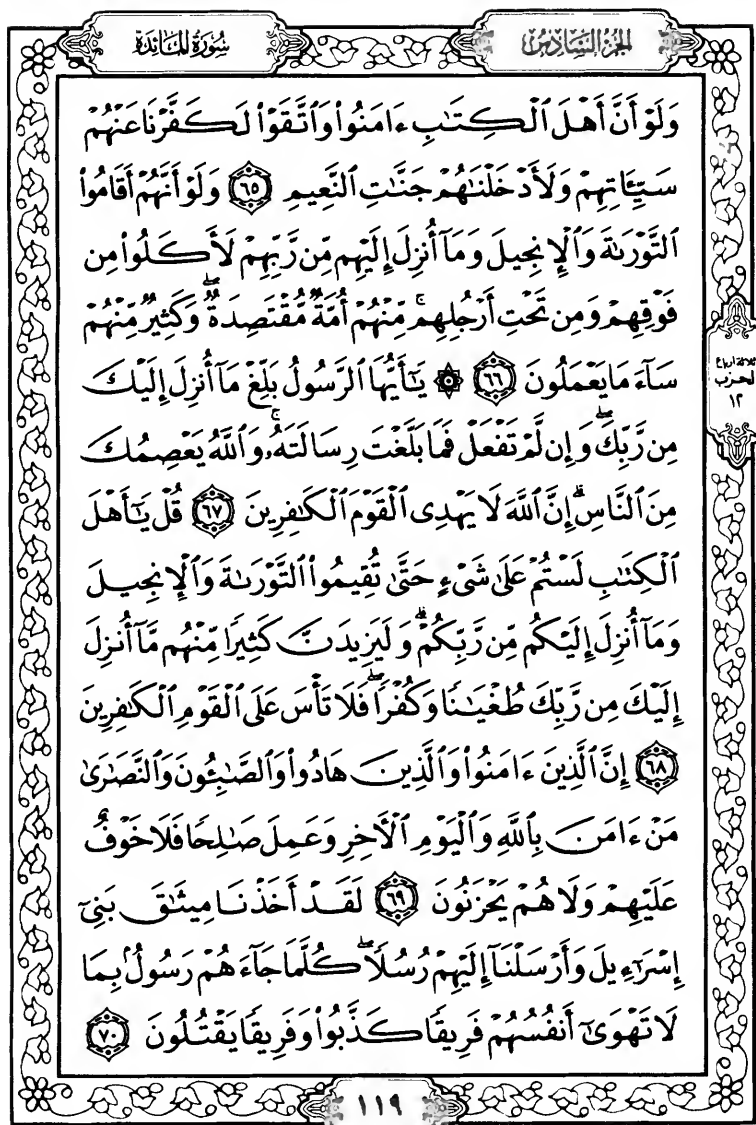 سُورَةُ المَائدَةِ
الجُزْءُ السَّادِسُ
وَلَوْ أَنَّ أَهْلَ ٱلْكِتَٰبِ ءَامَنُوا۟ وَٱتَّقَوْا۟ لَكَفَّرْنَا عَنْهُمْ
سَيِّـَٔاتِهِمْ وَلَأَدْخَلْنَٰهُمْ جَنَّٰتِ ٱلنَّعِيمِ ٦٥ وَلَوْ أَنَّهُمْ أَقَامُوا۟
ٱلتَّوْرَىٰةَ وَٱلْإِنجِيلَ وَمَآ أُنزِلَ إِلَيْهِم مِّن رَّبِّهِمْ لَأَكَلُوا۟ مِن
فَوْقِهِمْ وَمِن تَحْتِ أَرْجُلِهِم ۚ مِّنْهُمْ أُمَّةٌ مُّقْتَصِدَةٌ ۖ وَكَثِيرٌ مِّنْهُمْ
سَآءَ مَا يَعْمَلُونَ ٦٦ ۞ يَٰٓأَيُّهَا ٱلرَّسُولُ بَلِّغْ مَآ أُنزِلَ إِلَيْكَ
مِن رَّبِّكَ ۖ وَإِن لَّمْ تَفْعَلْ فَمَا بَلَّغْتَ رِسَالَتَهُۥ ۚ وَٱللَّهُ يَعْصِمُكَ
مِنَ ٱلنَّاسِ ۗ إِنَّ ٱللَّهَ لَا يَهْدِى ٱلْقَوْمَ ٱلْكَٰفِرِينَ ٦٧ قُلْ يَٰٓأَهْلَ
ٱلْكِتَٰبِ لَسْتُمْ عَلَىٰ شَىْءٍ حَتَّىٰ تُقِيمُوا۟ ٱلتَّوْرَىٰةَ وَٱلْإِنجِيلَ
وَمَآ أُنزِلَ إِلَيْكُم مِّن رَّبِّكُمْ ۗ وَلَيَزِيدَنَّ كَثِيرًا مِّنْهُم مَّآ أُنزِلَ
إِلَيْكَ مِن رَّبِّكَ طُغْيَٰنًا وَكُفْرًا ۖ فَلَا تَأْسَ عَلَى ٱلْقَوْمِ ٱلْكَٰفِرِينَ
٦٨ إِنَّ ٱلَّذِينَ ءَامَنُوا۟ وَٱلَّذِينَ هَادُوا۟ وَٱلصَّٰبِـُٔونَ وَٱلنَّصَٰرَىٰ
مَنْ ءَامَنَ بِٱللَّهِ وَٱلْيَوْمِ ٱلْءَاخِرِ وَعَمِلَ صَٰلِحًا فَلَا خَوْفٌ
عَلَيْهِمْ وَلَا هُمْ يَحْزَنُونَ ٦٩ لَقَدْ أَخَذْنَا مِيثَٰقَ بَنِىٓ
إِسْرَٰٓءِيلَ وَأَرْسَلْنَآ إِلَيْهِمْ رُسُلًا ۖ كُلَّمَا جَآءَهُمْ رَسُولٌۢ بِمَا
لَا تَهْوَىٰٓ أَنفُسُهُمْ فَرِيقًا كَذَّبُوا۟ وَفَرِيقًا يَقْتُلُونَ ٧٠
ثلاثة أرباع
الحزب
١٢
١١٩